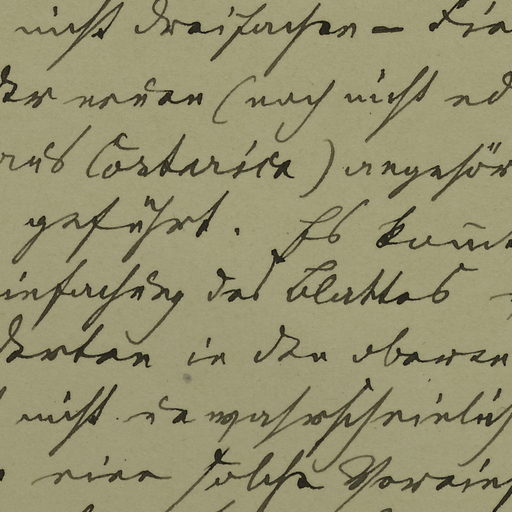 nicht dreifachen – Fie
der neuen (noch nicht ed
aus Costarica) angehör
geführt. Es kom̄t
infachung des Blattes
derten in den oberen
nicht unwahrscheinlich
eine solche Verein